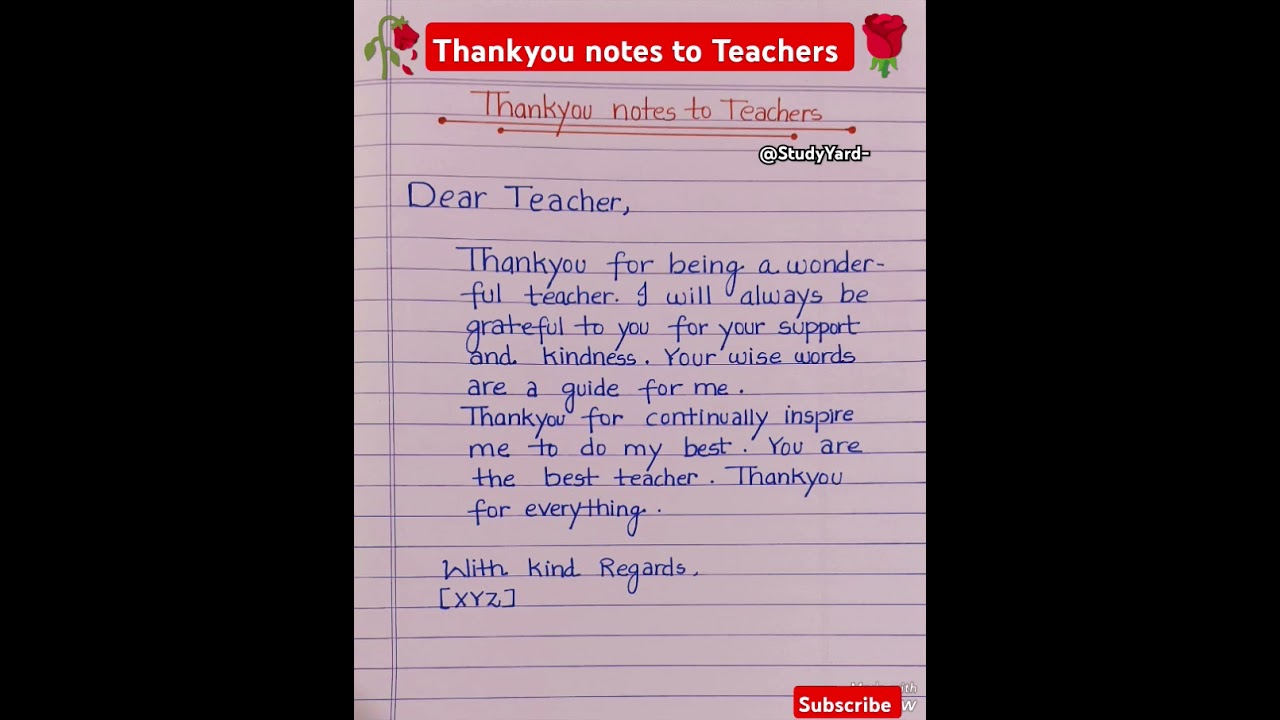 Thankyou notes to Teachers
Thankyou notes to Teachers
@StudyYard-
Dear Teacher,
Thankyou for being a wonder-
ful teacher. I will always be
grateful to you for your support
and kindness. Your wise words
are a guide for me.
Thankyou for continually inspire
me to do my best. You are
the best teacher. Thankyou
for everything.
With Kind Regards,
[XYZ]
Subscribe